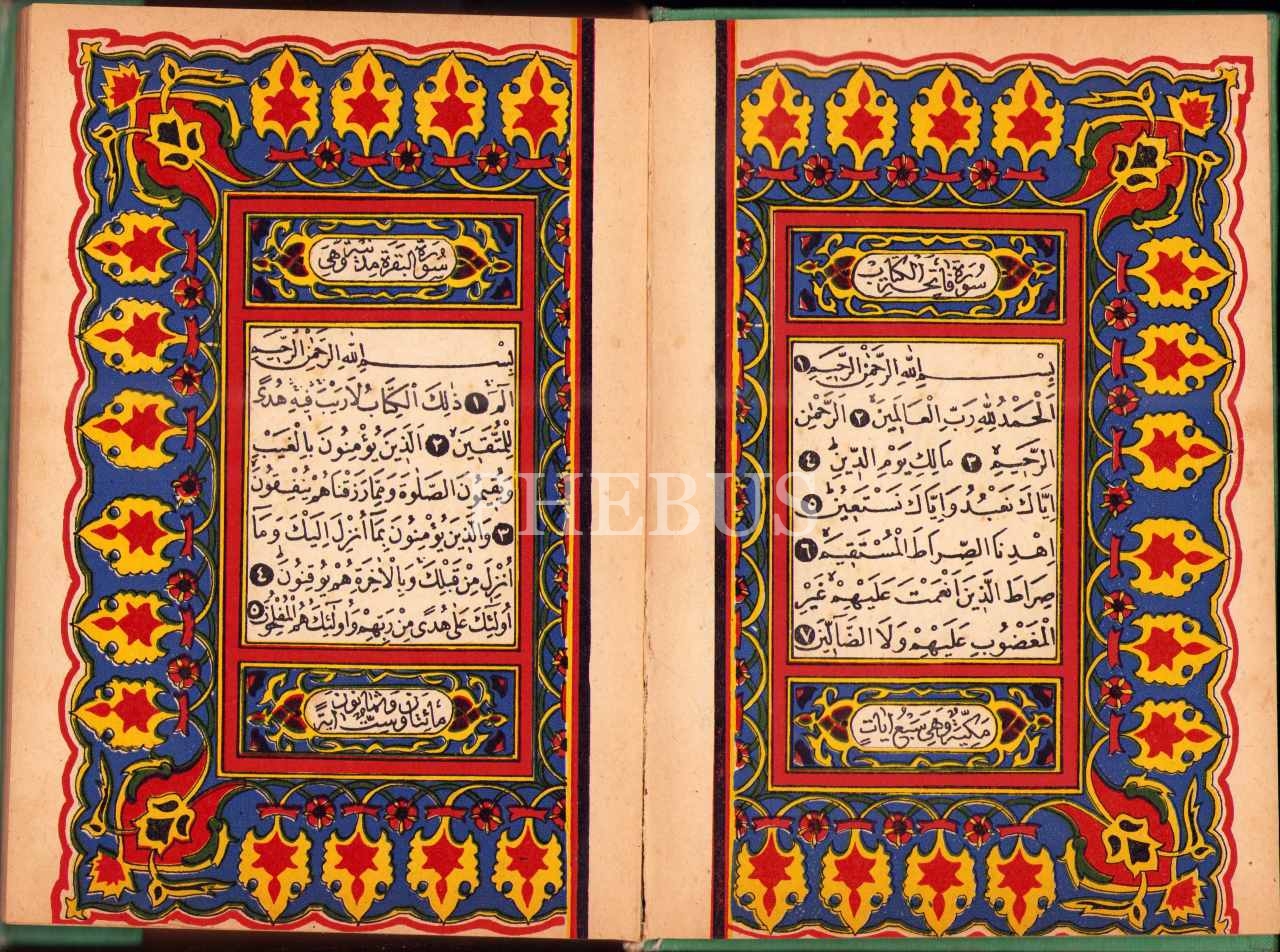 سُورَةُ فَاتِحَةِ الْكِتَابِ
بِسْمِ اللهِ الرَّحْمٰنِ الرَّحِيمِ ١
اَلْحَمْدُ لِلّٰهِ رَبِّ الْعَالَمِينَ ٢ اَلرَّحْمٰنِ
الرَّحِيمِ ٣ مَالِكِ يَوْمِ الدِّينِ ٤
اِيَّاكَ نَعْبُدُ وَاِيَّاكَ نَسْتَعِينُ ٥
اِهْدِنَا الصِّرَاطَ الْمُسْتَقِيمَ ٦
صِرَاطَ الَّذِينَ اَنْعَمْتَ عَلَيْهِمْ غَيْرِ
الْمَغْضُوبِ عَلَيْهِمْ وَلَا الضَّالِّينَ ٧
مَكِّيَّةٌ وَهِيَ سَبْعُ اٰيَاتٍ
سُورَةُ الْبَقَرَةِ مَدَنِيَّةٌ وَهِيَ
بِسْمِ اللهِ الرَّحْمٰنِ الرَّحِيمِ
الٓمٓ ١ ذٰلِكَ الْكِتَابُ لَا رَيْبَ فِيهِ هُدًى
لِلْمُتَّقِينَ ٢ اَلَّذِينَ يُؤْمِنُونَ بِالْغَيْبِ
وَيُقِيمُونَ الصَّلٰوةَ وَمِمَّا رَزَقْنَاهُمْ يُنْفِقُونَ
٣ وَالَّذِينَ يُؤْمِنُونَ بِمَا اُنْزِلَ اِلَيْكَ وَمَا
اُنْزِلَ مِنْ قَبْلِكَ وَبِالْاٰخِرَةِ هُمْ يُوقِنُونَ ٤
اُولٰئِكَ عَلٰى هُدًى مِنْ رَبِّهِمْ وَاُولٰئِكَ هُمُ الْمُفْلِحُونَ ٥
مِائَتَانِ وَثَمَانُونَ
وَسِتُّ اٰيَةً
PHEBUS